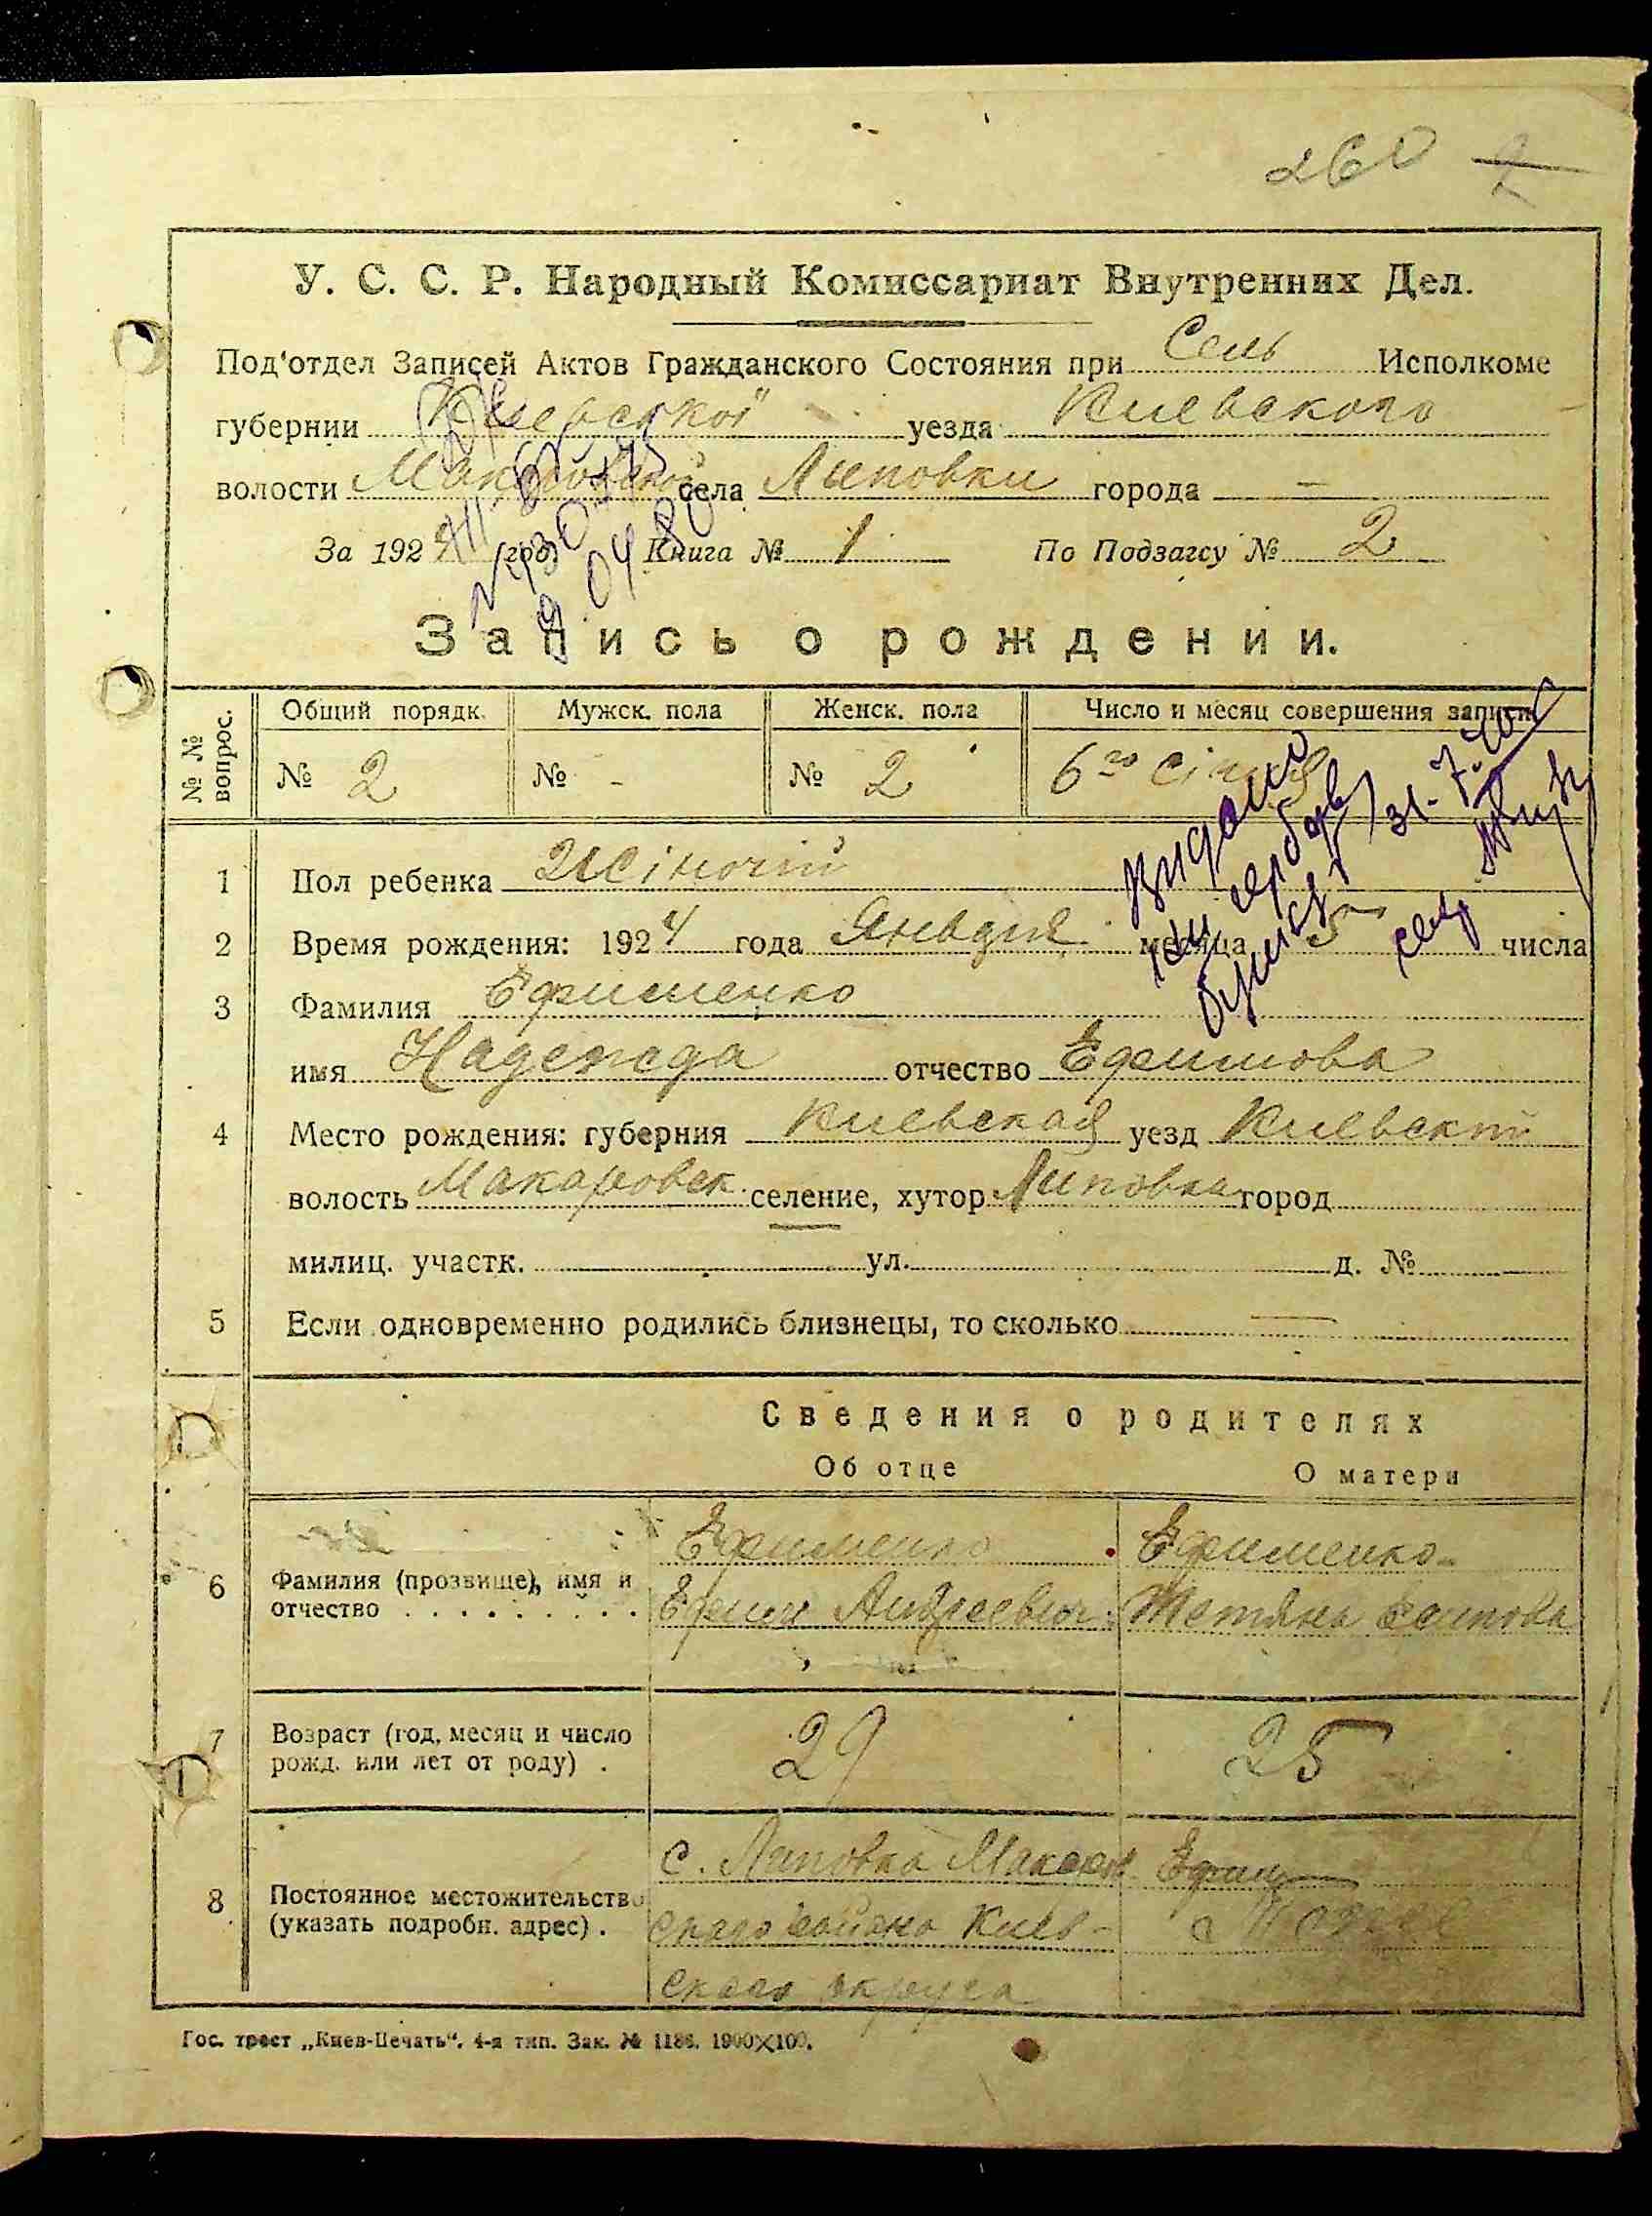 260 2
У. С. С. Р. Народный Комиссариат Внутренних Дел.
Под'отдел Записей Актов Гражданского Состояния при Сель Исполкоме
губернии уезда Киевского
волости Макаровской села Липовки города —
За 1924 год Книга № 1 По Подзагсу № 2
Запись о рождении.
№ № вопрос.
Общий порядк. Мужск. пола Женск. пола Число и месяц совершения записи
№ 2 № - № 2 6го січня
видано 31-7-40
1 Пол ребенка Жіночий
2 Время рождения: 1924 года Января месяца 5 числа
3 Фамилия Ефименко
имя Надежда отчество Ефимова
4 Место рождения: губерния Киевская уезд Киевский
волость Макаровск. селение, хутор Липовка город
милиц. участк. ул. д. №
5 Если одновременно родились близнецы, то сколько —
Сведения о родителях
Об отце О матери
Ефименко Ефименко
6 Фамилия (прозвище), имя и отчество . . . . . . . . . Ефим Андреевич Тетяна
7 Возраст (год, месяц и число рожд. или лет от роду) . 29 25
с. Липовка Макаров
8 Постоянное местожительство (указать подробн. адрес) . ского района Киев-
ского округа
Гос. трест „Киев-Печать“. 4-я тип. Зак. № 1186. 1900×100.